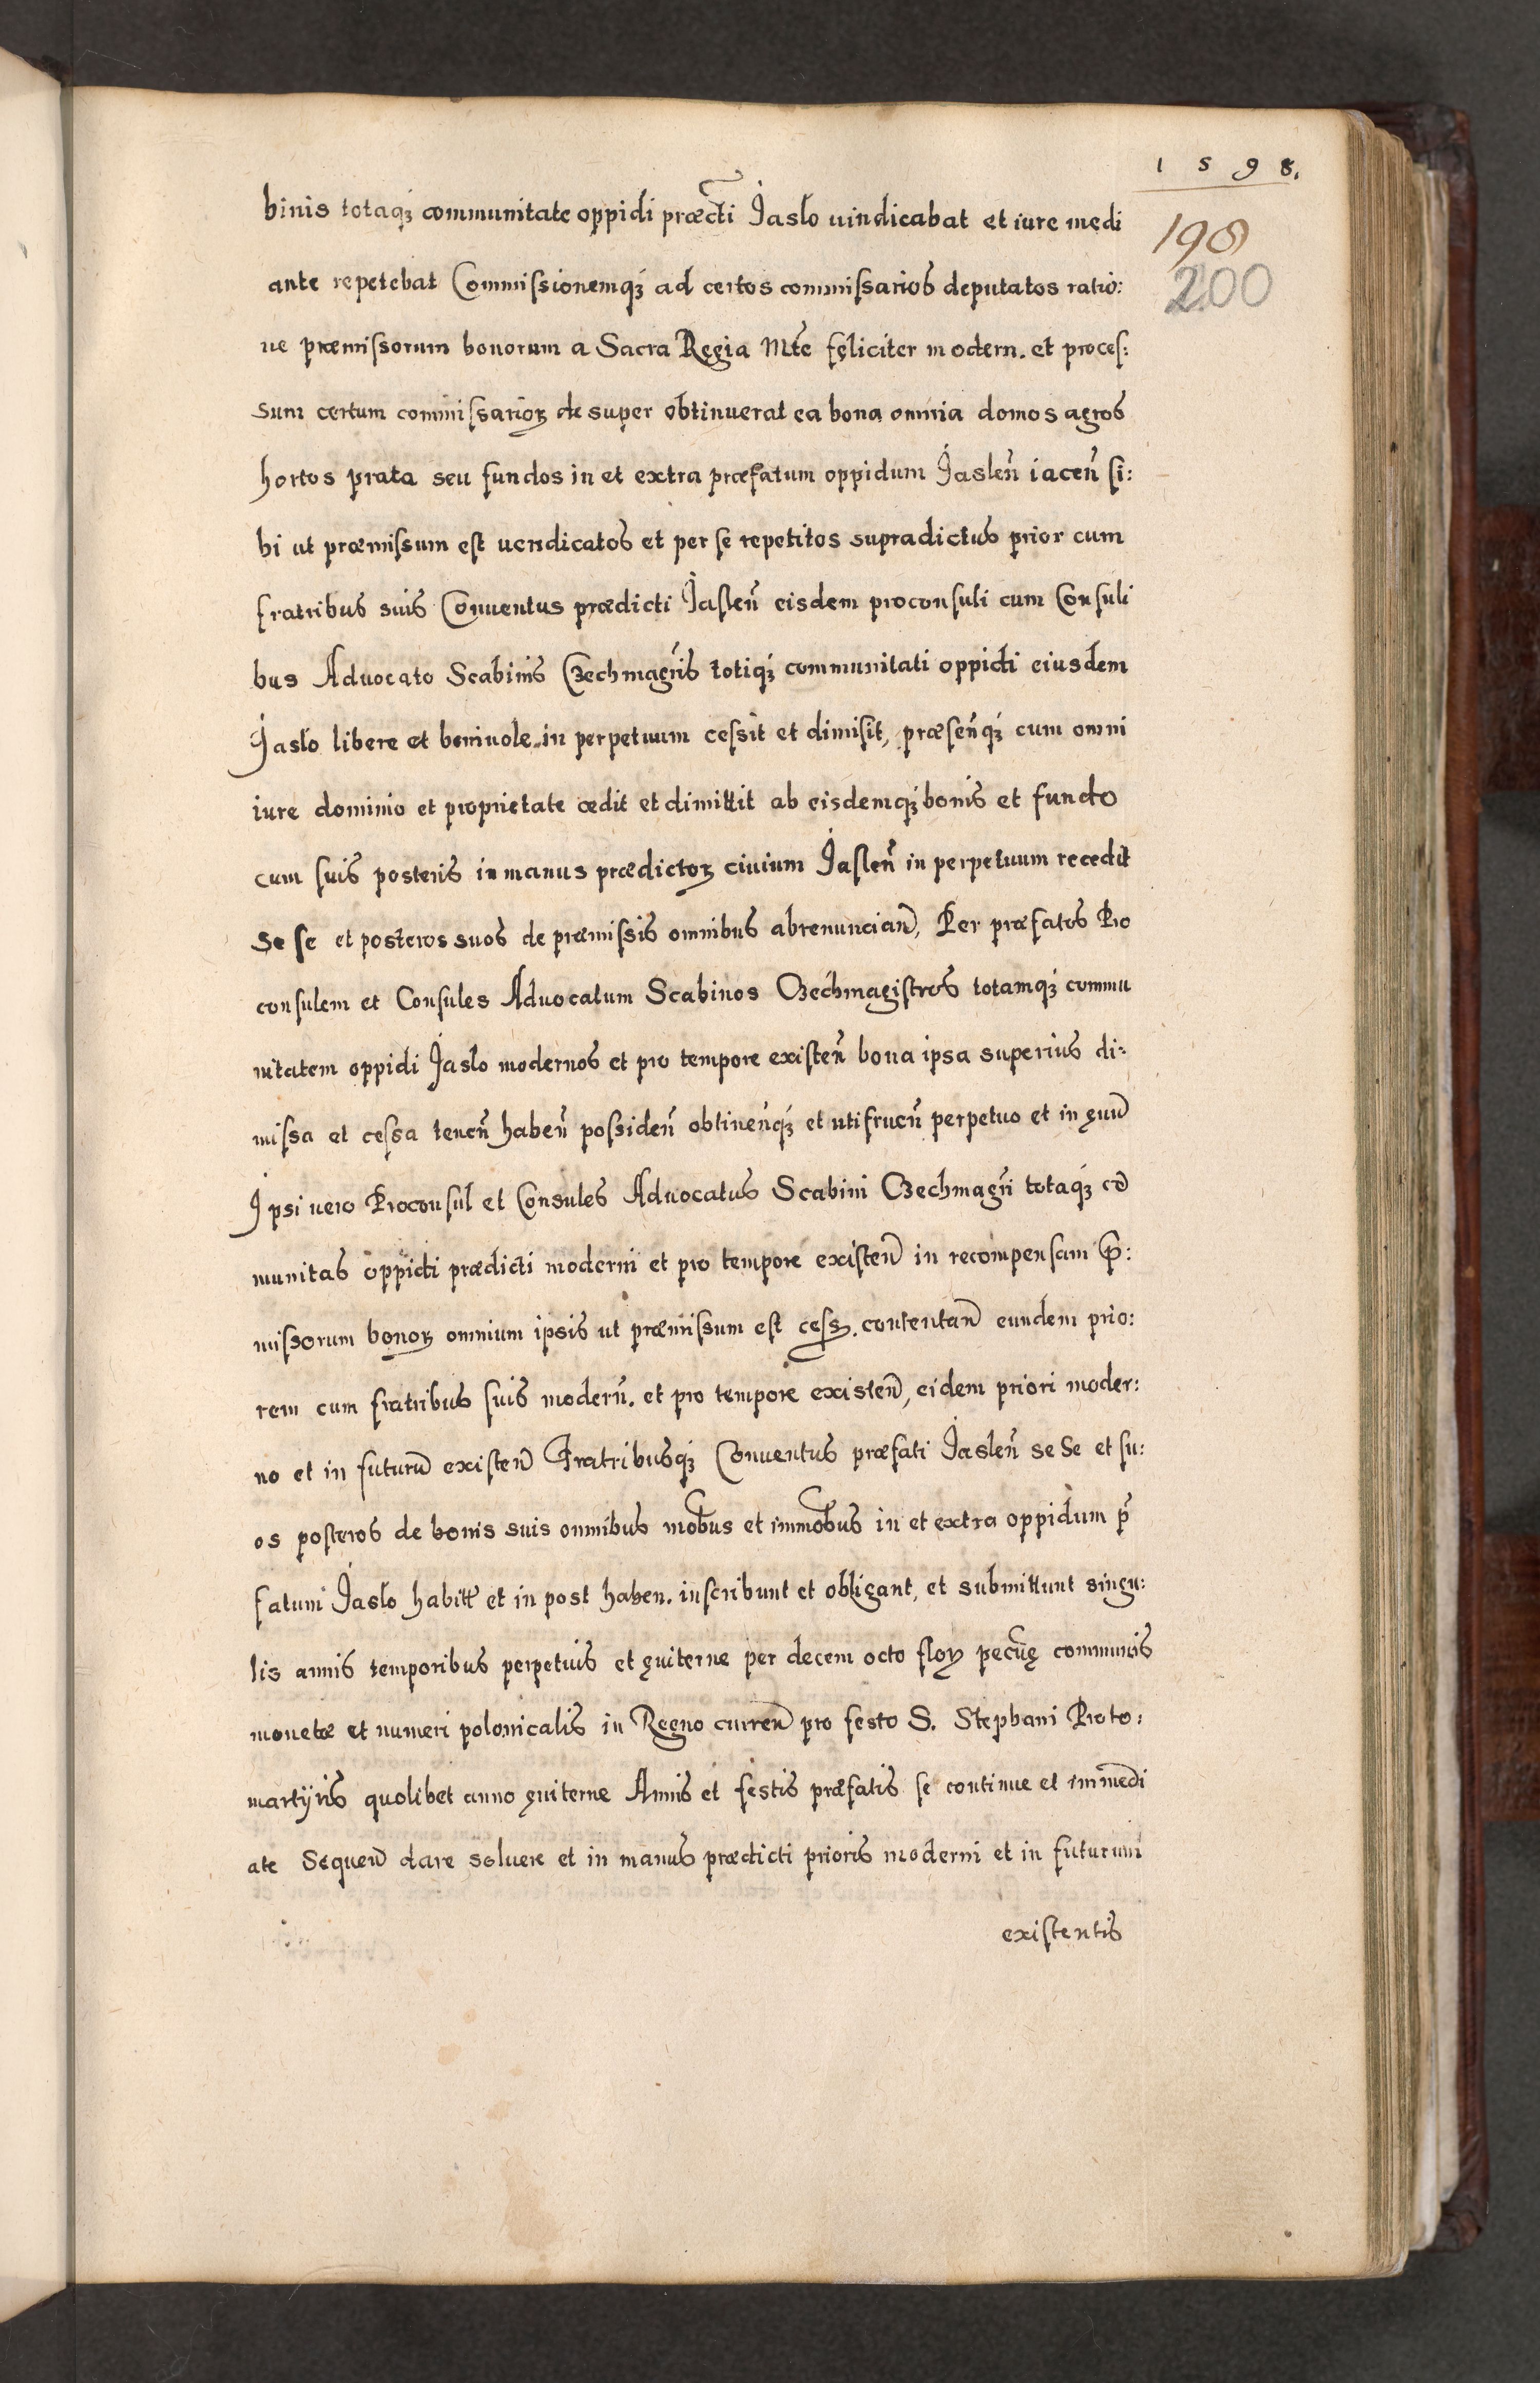 1598.
198
200
binis totaqȝ communitate oppidi præcti Jaslo uindicabat et iure medi
ante repetebat Commissionemqȝ ad certos commissarios deputatos ratio:
ne præmissorum bonorum a Sacra Regia Mte feliciter modern. et proces:
sum certum commissarioꝝ desuper obtinuerat ea bona omnia domos agros
hortos prata seu fundos in et extra præfatum oppidum Jasleñ iaceñ si:
bi ut præmissum est uendicatos et per se repetitos supradictus prior cum
fratribus suis Conuentus prædicti Jasleñ eisdem proconsuli cum Consuli
bus Aduocato Scabinis Czechmagr̃is totiqȝ communitati oppidi eiusdem
Jaslo libere et beniuole in perpetuum cessit et dimisit, præseñqȝ cum omni
iure dominio et proprietate cedit et dimittit ab eisdemqȝ bonis et fundo
cum suis posteris in manus prædictoꝝ ciuium Jasleñ in perpetuum recedit
Se se et posteros suos de præmissis omnibus abrenunciañ, Per præfatos Pro
consulem et Consules Aduocatum Scabinos Czechmagistros totamqȝ commu
nitatem oppidi Jaslo modernos et pro tempore existeñ bona ipsa superius di:
missa et cessa teneñ habeñ possideñ obtineñqȝ et utifrueñ perpetuo et in ęuũ
Ipsi uero Proconsul et Consules Aduocatus Scabini Czechmagr̃i totaqȝ cõ
munitas oppidi prædicti moderni et pro tempore existeñ in recompensam p̃:
missorum bonoꝝ omnium ipsis ut præmissum est cess. contentañ eundem prio:
rem cum fratribus suis moderñ. et pro tempore existeñ, eidem priori moder:
no et in futurũ existeñ Fratribusqȝ Conuentus præfati Jasleñ se se et su:
os posteros de bonis suis omnibus mobus et immobus in et extra oppidum p̃
fatum Jaslo habitt et in post haben. inscribunt et obligant, et submittunt singu:
lis annis temporibus perpetuis et ęuiterne per decem octo floꝝ pecũę communis
monetæ et numeri polonicalis in Regno curreñ pro festo S. Stephani Proto:
martyris quolibet anno ęuiterne Annis et festis præfatis se continue et immedi
ate Sequeñ dare soluere et in manus prædicti prioris moderni et in futurum
existentis